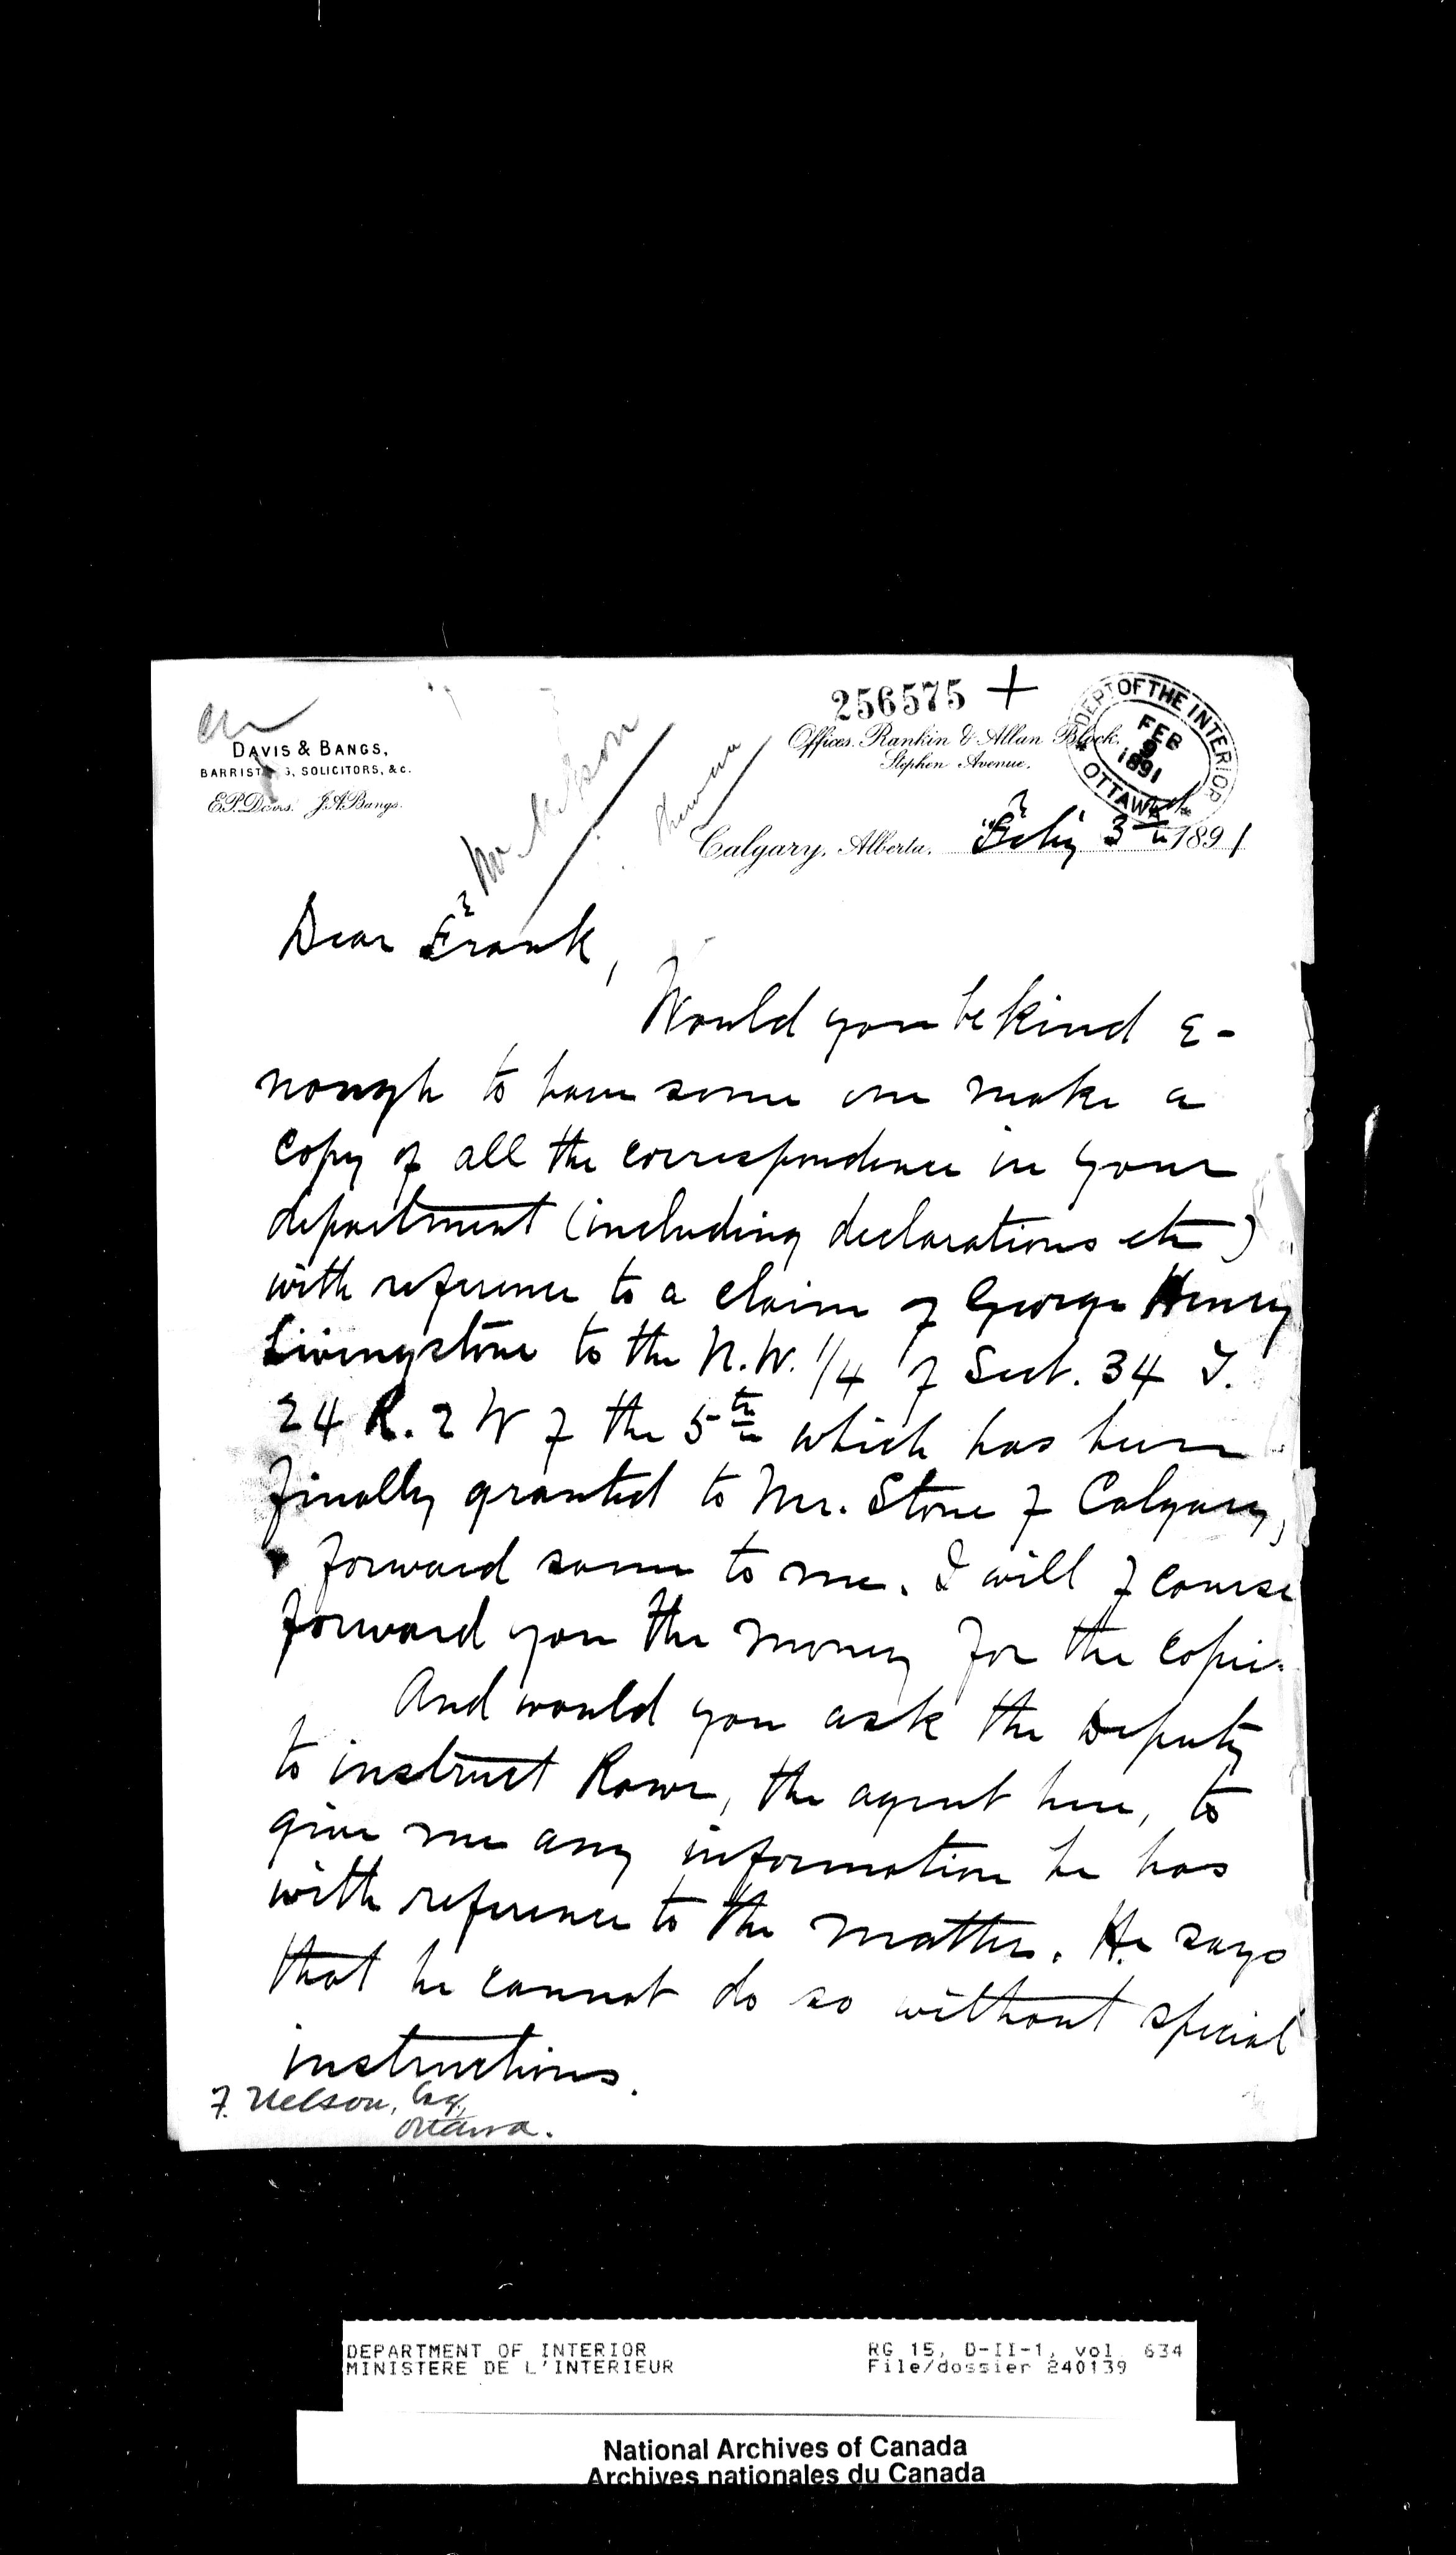 256575 +
DEPT OF THE INTERIOR
FEB
9
1891
OTTAWA
DAVIS & BANGS,
BARRISTERS, SOLICITORS, &c.
E.P. Davis. J.A. Bangs.
Offices, Rankin & Allan Block,
Stephen Avenue.
Mr. Nelson
Calgary, Alberta. Feby 3rd 1891
Dear Frank,
Would you be kind e-
nough to have some one make a
copy of all the correspondence in your
department (including declarations etc)
with reference to a claim of George Henry
Livingstone to the N.W. 1/4 of Sect. 34 T.
24 R. 2 W of the 5th which has been
finally granted to Mr. Stone of Calgary,
forward same to me. I will of course
forward you the money for the copies.
And would you ask the Deputy
to instruct Rowe, the agent here, to
give me any information he has
with reference to the matter. He says
that he cannot do so without special
instructions.
F. Nelson, Esq,
Ottawa.
DEPARTMENT OF INTERIOR RG 15, D-II-1, vol. 634
MINISTERE DE L'INTERIEUR File/dossier 240139
National Archives of Canada
Archives nationales du Canada